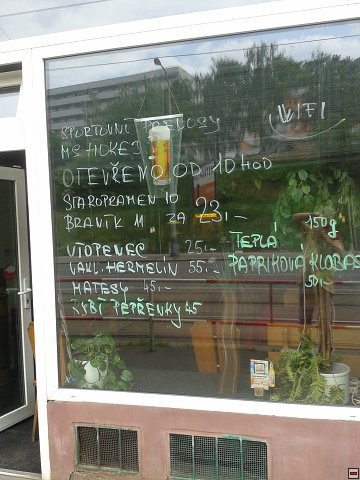 WIFI
SPORTOVNÍ PŘENOSY
MS HOKEJ
OTEVŘENO OD 10 HOD
STAROPRAMEN 10
BRAVÍK 11 ZA 23,-
UTOPENEC 25,-
NAKL. HERMELÍN 55,-
MATESY 45,-
RYBÍ PEPŘENKY 45
150g
TEPLÁ
PAPRIKOVÁ KLOBÁS
50,-